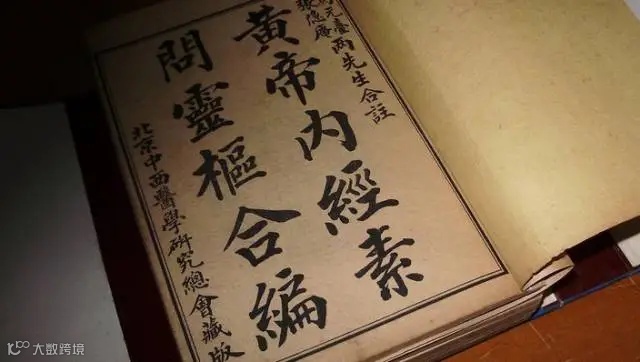 元臺
張隱庵
兩先生合註
黃帝內經素
問靈樞合編
北京中西醫學研究總會藏版
大数跨境